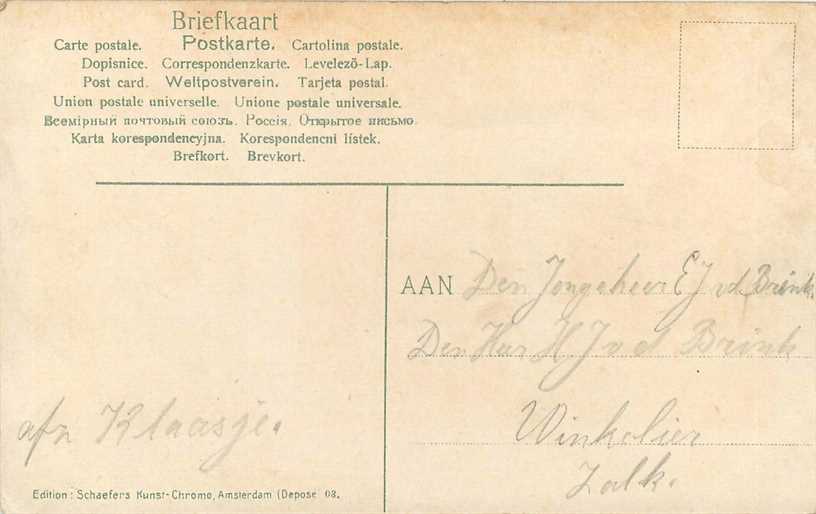 Briefkaart
Carte postale. Postkarte. Cartolina postale.
Dopisnice. Correspondenzkarte. Levelező-Lap.
Post card. Weltpostverein. Tarjeta postal.
Union postale universelle. Unione postale universale.
Всемірный почтовый союзъ. Россія. Открытое письмо.
Karta korespondencyjna. Korespondencni lístek.
Brefkort. Brevkort.
AAN Den Jongeheer E J vd Brink.
Den Har H J v d Brink
Winkelier
Zalk.
afz Klaasje.
Edition: Schaefers Kunst-Chromo, Amsterdam (Deposé 08.